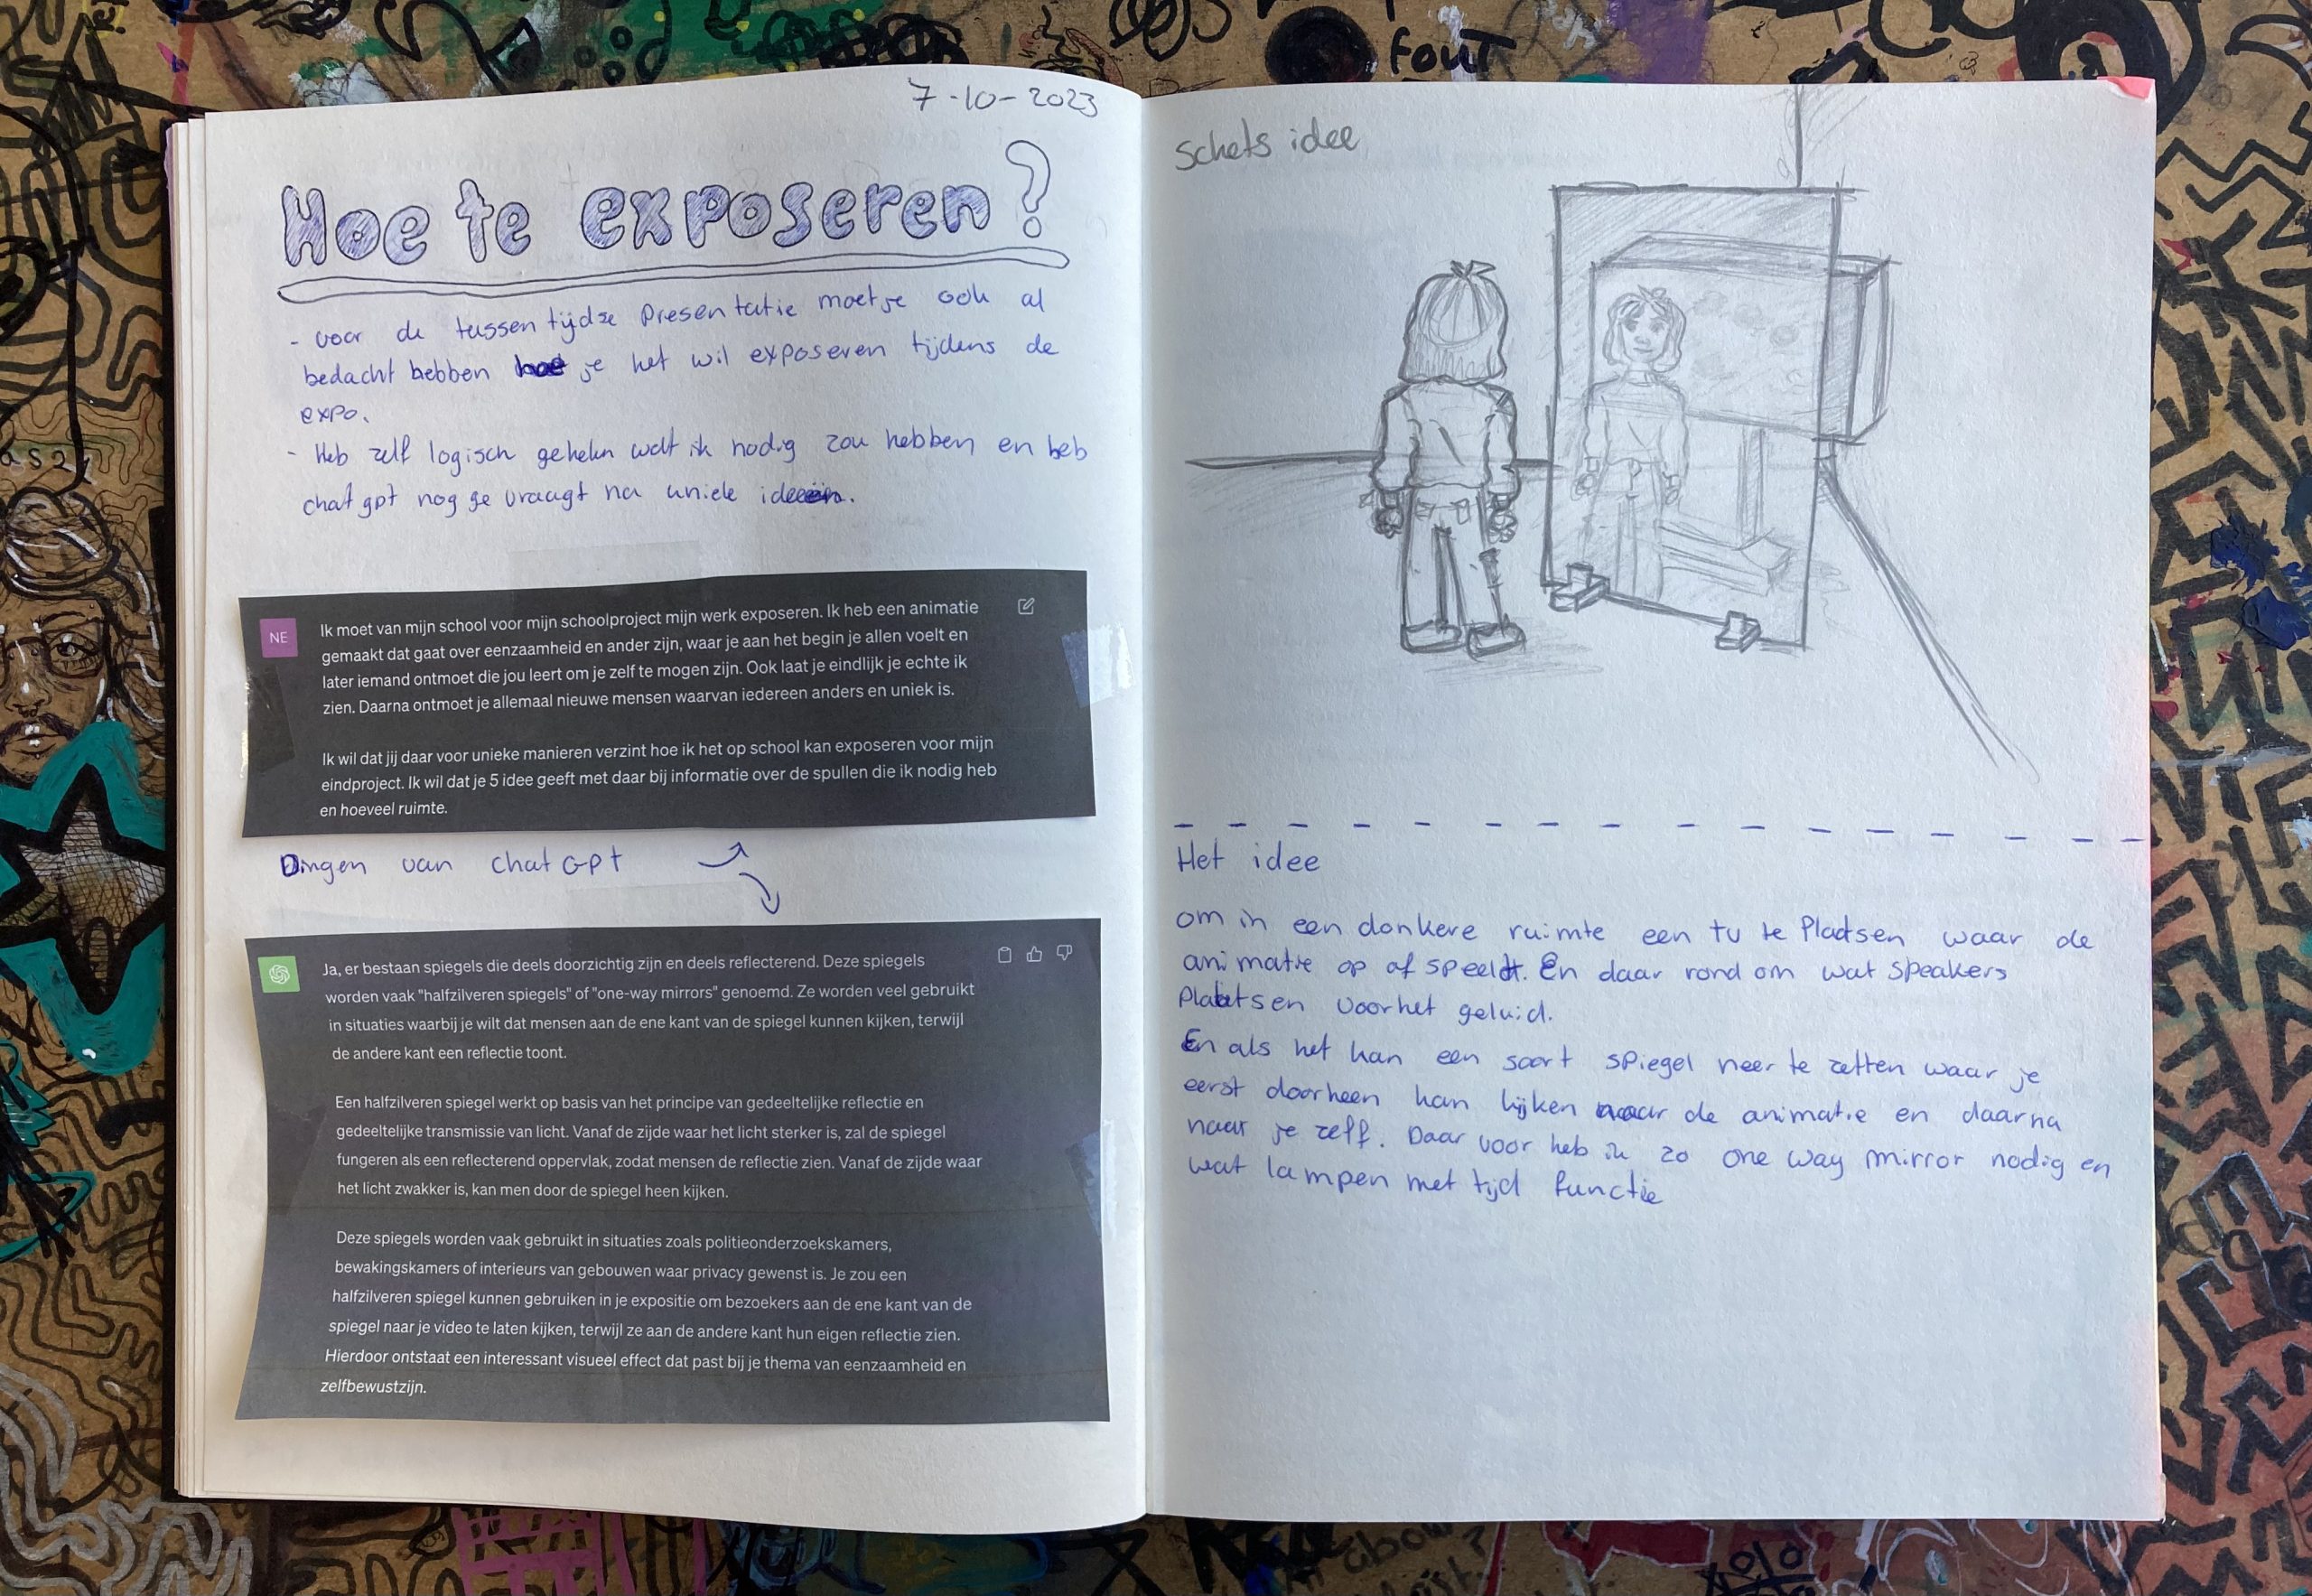 fout
7-10-2023
Hoe te exposeren?
- voor de tussentijdse presentatie moet je ook al
bedacht hebben hoe je het wil exposeren tijdens de
expo.
- Heb zelf logisch gekeken wat ik nodig zou hebben en heb
chat gpt nog gevraagt na unieke ideeën.
NE
Ik moet van mijn school voor mijn schoolproject mijn werk exposeren. Ik heb een animatie
gemaakt dat gaat over eenzaamheid en ander zijn, waar je aan het begin je allen voelt en
later iemand ontmoet die jou leert om je zelf te mogen zijn. Ook laat je eindlijk je echte ik
zien. Daarna ontmoet je allemaal nieuwe mensen waarvan iedereen anders en uniek is.
Ik wil dat jij daar voor unieke manieren verzint hoe ik het op school kan exposeren voor mijn
eindproject. Ik wil dat je 5 idee geeft met daar bij informatie over de spullen die ik nodig heb
en hoeveel ruimte.
Dingen van chat Gpt
Ja, er bestaan spiegels die deels doorzichtig zijn en deels reflecterend. Deze spiegels
worden vaak "halfzilveren spiegels" of "one-way mirrors" genoemd. Ze worden veel gebruikt
in situaties waarbij je wilt dat mensen aan de ene kant van de spiegel kunnen kijken, terwijl
de andere kant een reflectie toont.
Een halfzilveren spiegel werkt op basis van het principe van gedeeltelijke reflectie en
gedeeltelijke transmissie van licht. Vanaf de zijde waar het licht sterker is, zal de spiegel
fungeren als een reflecterend oppervlak, zodat mensen de reflectie zien. Vanaf de zijde waar
het licht zwakker is, kan men door de spiegel heen kijken.
Deze spiegels worden vaak gebruikt in situaties zoals politieonderzoekskamers,
bewakingskamers of interieurs van gebouwen waar privacy gewenst is. Je zou een
halfzilveren spiegel kunnen gebruiken in je expositie om bezoekers aan de ene kant van de
spiegel naar je video te laten kijken, terwijl ze aan de andere kant hun eigen reflectie zien.
Hierdoor ontstaat een interessant visueel effect dat past bij je thema van eenzaamheid en
zelfbewustzijn.
Schets idee
Het idee
om in een donkere ruimte een tv te plaatsen waar de
animatie op af speelt. En daar rond om wat speakers
plaatsen voor het geluid.
En als het kan een soort spiegel neer te zetten waar je
eerst doorheen kan kijken naar de animatie en daarna
naar je zelf. Daar voor heb ik zo one way mirror nodig en
wat lampen met tijd functie